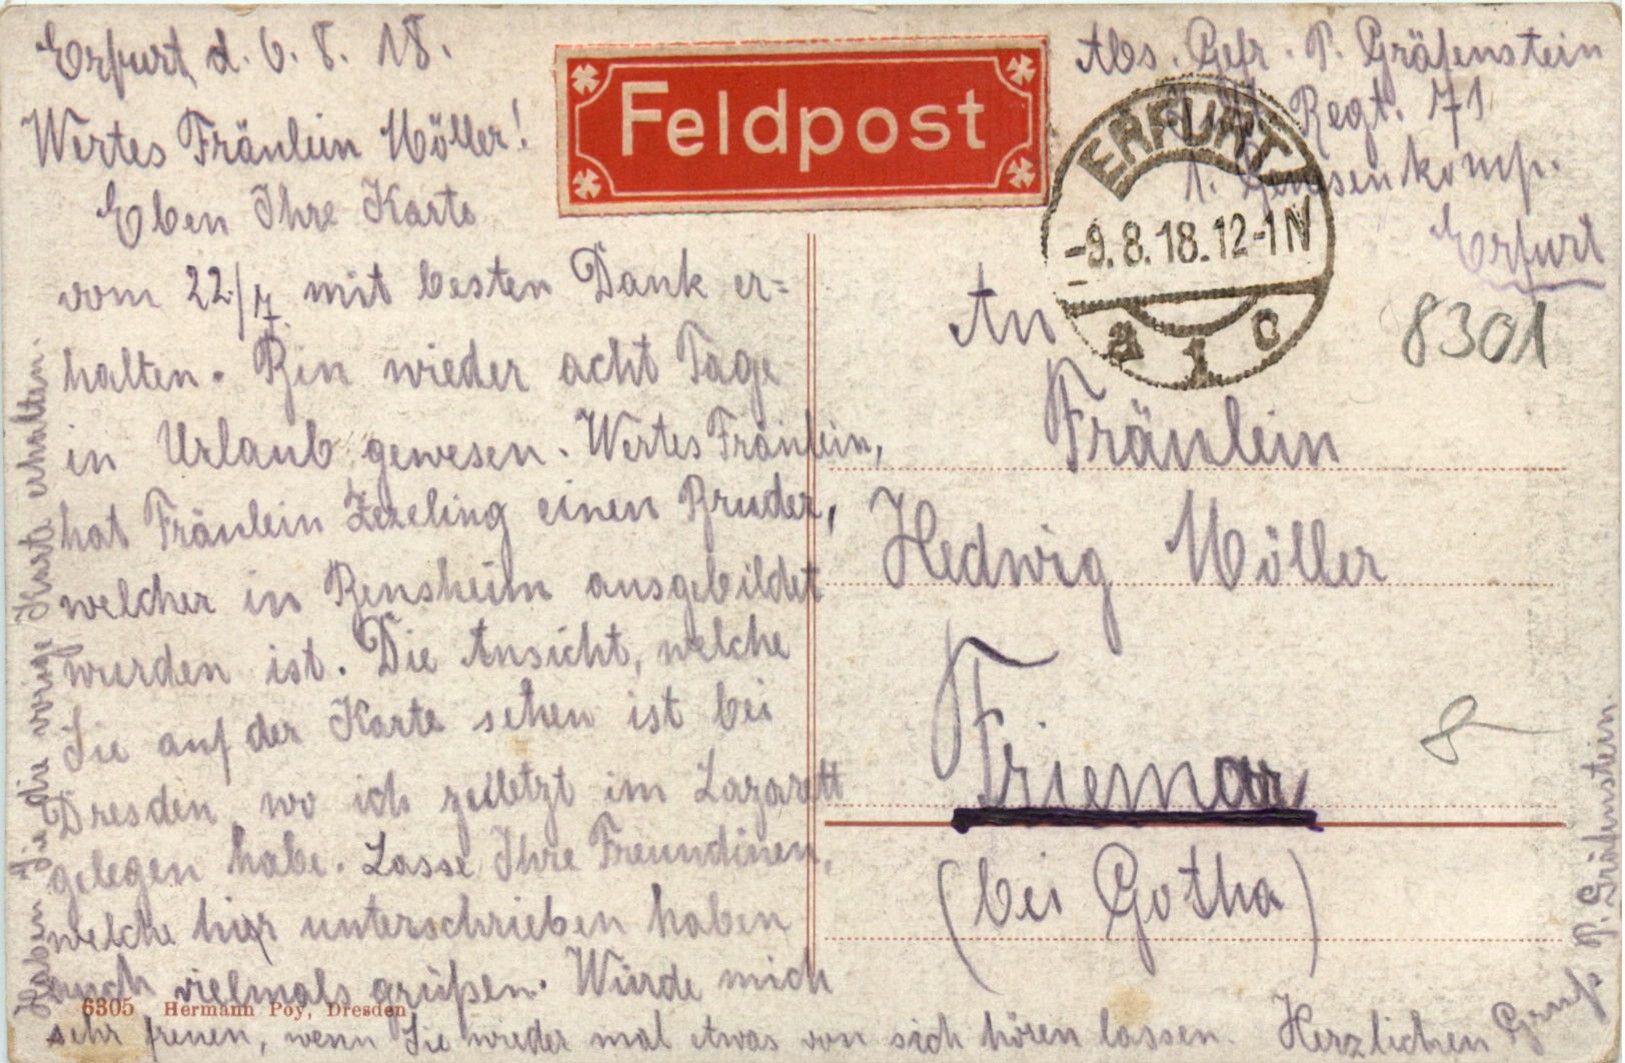 Erfurt, d. 6. 8. 18.
Wertes Fräulein Möller!
Eben Ihre Karte
vom 22./7. mit besten Dank er=
halten. Bin wieder acht Tage
in Urlaub gewesen. Wertes Fräulein,
hat Fräulein einen Bruder,
welcher in Bensheim ausgebildet
wurden ist. Die Ansicht, welche
Sie auf der Karte sehen ist bei
Dresden, wo ich zuletzt im Lazarett
gelegen habe. Lasse Ihre Freundinen,
welche hier unterschrieben haben
auch vielmals grüßen. Würde mich
sehr freuen, wenn Sie wieder mal etwas von sich hören lassen. Herzlichen Gruß P. Gräfenstein.
Haben Sie die vorige Karte erhalten.
Feldpost
Abs. Gefr. P. Gräfenstein
Regt. 71
1. Genesenkomp.
Erfurt
ERFURT
-9.8.18.12-1N
a 1 c
8301
An
Fräulein
Hedwig Möller
Friemar
(bei Gotha)
8-
6305 Hermann Poy, Dresden